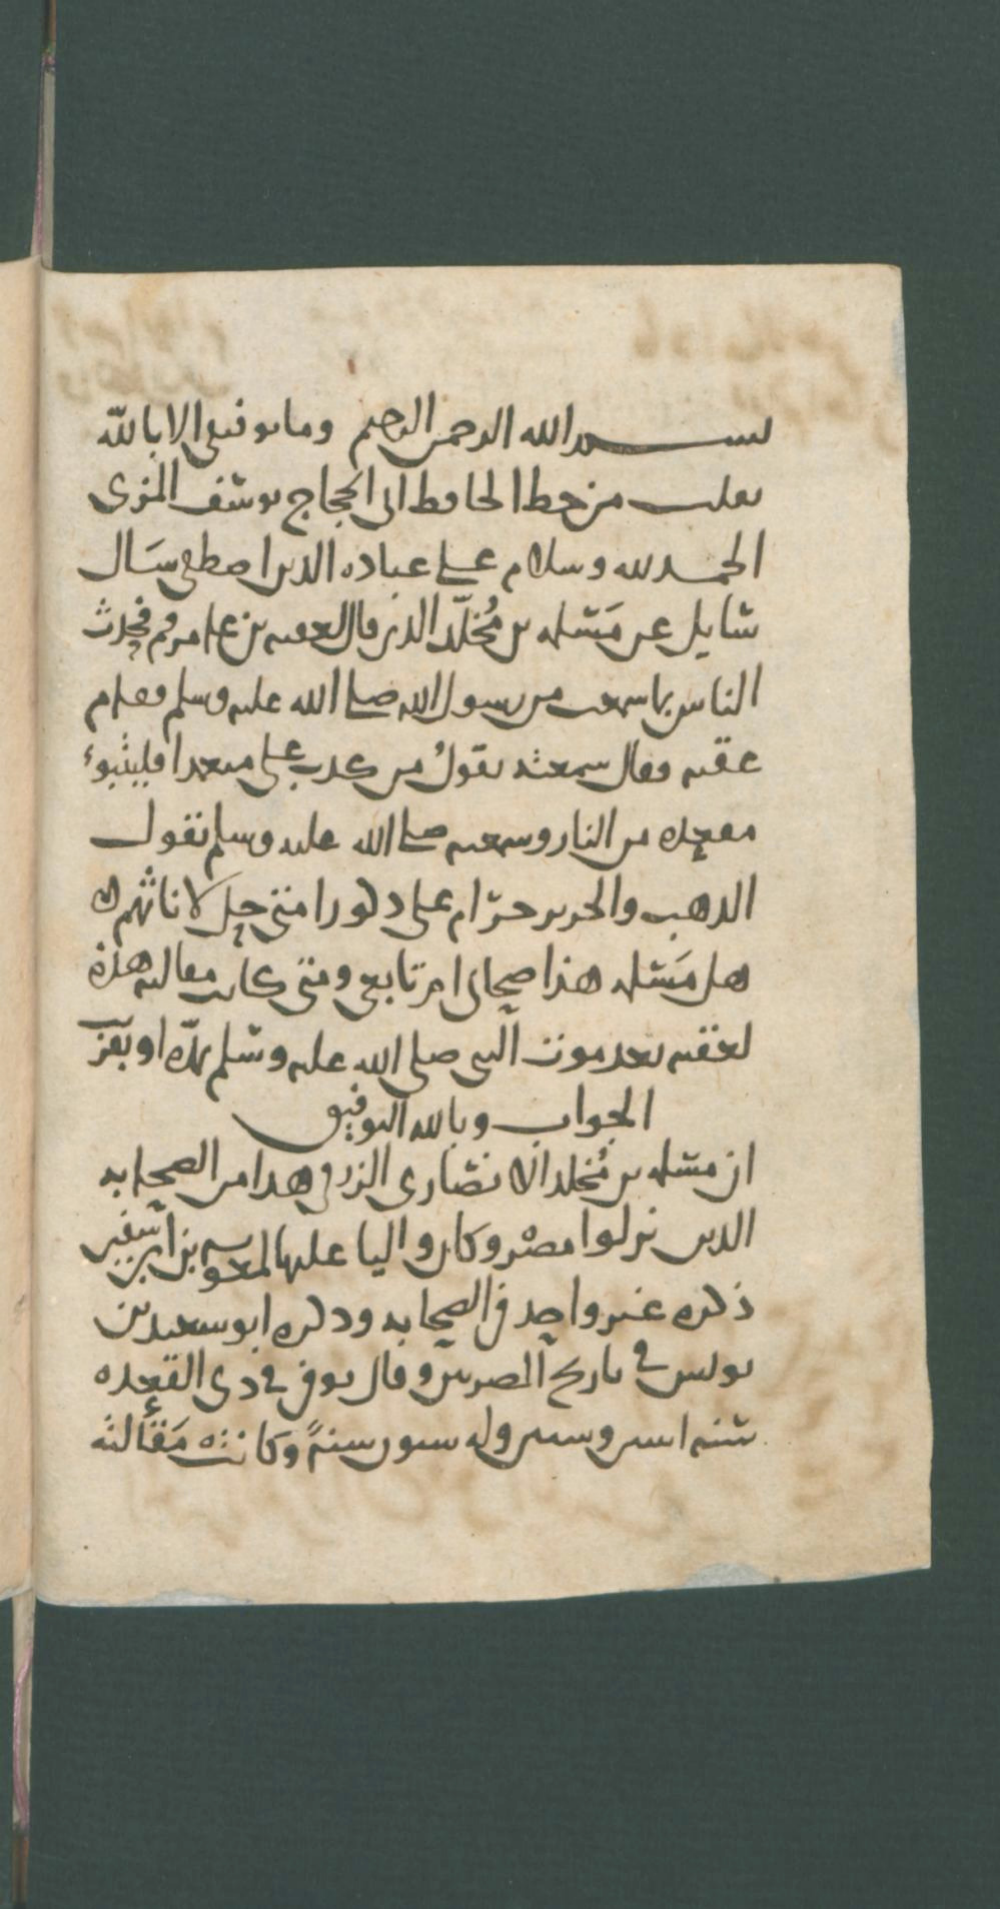 بسم الله الرحمن الرحيم وما توفيقي الا بالله
نقلت من خط الحافظ ابي الحجاج يوسف المزي
الحمد لله وسلام على عباده الذين اصطفى سال
سايل عن مسلمه بن مُخلّد الذي قال لعقبه بن عامر قم فحدث
الناس بما سمعت من رسول الله صلى الله عليه وسلم فقام
عقبه فقال سمعته يقولُ من كذب علي متعمدا فليتبوء
مقعده من النار وسمعته صلى الله عليه وسلم يقول
الذهب والحرير حرّام على ذكور امتي حِل لاناثهم
هل مَسلمه هذا صحابي ام تابعي ومتى كانت مقالته هذه
لعقبه بعد موت النبي صلى الله عليه وسلم بمدّه او بقرب
الجواب وبالله التوفيق
ان مسلمه بن مُخلد الانصاري الزرقي هذا من الصحابه
الذين نزلوا مصْر وكان واليا عليها لمعويه بن ابي سفين
ذكره غير واحد في الصحابه وذكره ابو سعيد بن
يونس في تاريخ المصريين وقال توفي في ذي القعده
سنه اثنين وستين وله ستون سنةً وكانت مَقَالته